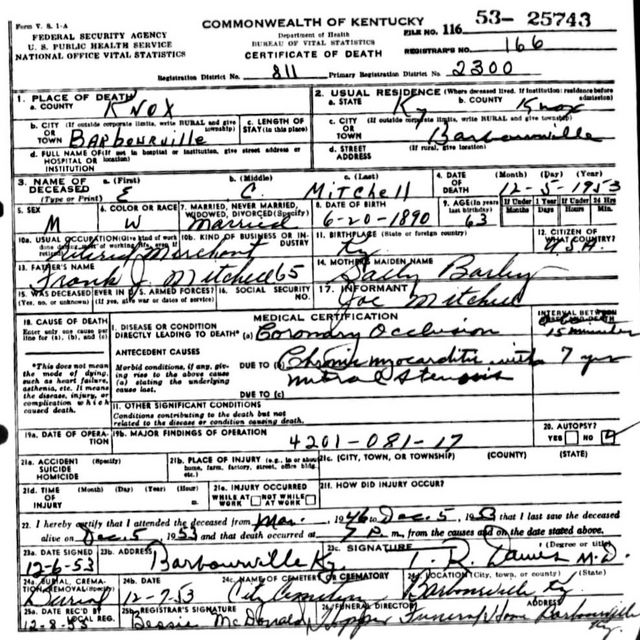 Form V. S. 1-A
FEDERAL SECURITY AGENCY
U. S. PUBLIC HEALTH SERVICE
NATIONAL OFFICE VITAL STATISTICS
COMMONWEALTH OF KENTUCKY
Department of Health
BUREAU OF VITAL STATISTICS
CERTIFICATE OF DEATH
FILE NO. 116 53- 25743
REGISTRAR'S NO. 166
Registration District No. 811 Primary Registration District No. 2300
1. PLACE OF DEATH
a. COUNTY KNOX
2. USUAL RESIDENCE (Where deceased lived. If institution: residence before admission)
a. STATE Ky b. COUNTY Knox
b. CITY (If outside corporate limits, write RURAL and give township)
OR TOWN Barbourville
c. LENGTH OF STAY (in this place)
c. CITY (If outside corporate limits, write RURAL and give township)
OR TOWN Barbourville
d. FULL NAME OF (If not in hospital or institution, give street address or location)
HOSPITAL OR INSTITUTION
d. STREET ADDRESS (If rural, give location)
3. NAME OF DECEASED (Type or Print)
a. (First) E b. (Middle) C. c. (Last) Mitchell
4. DATE OF DEATH (Month) (Day) (Year) 12-5-1953
5. SEX M
6. COLOR OR RACE W
7. MARRIED, NEVER MARRIED, WIDOWED, DIVORCED (Specify) Married
8. DATE OF BIRTH 6-20-1890
9. AGE (In years last birthday) 63
If Under 1 Year Months Days
If Under 24 Hrs Hours Min.
10a. USUAL OCCUPATION (Give kind of work done during most of working life, even if retired) Merchant
10b. KIND OF BUSINESS OR INDUSTRY
11. BIRTHPLACE (State or foreign country) Ky
12. CITIZEN OF WHAT COUNTRY? U.S.A.
13. FATHER'S NAME Frank J. Mitchell 65
14. MOTHER'S MAIDEN NAME Sally
15. WAS DECEASED EVER IN U.S. ARMED FORCES?
(Yes, no, or unknown) (If yes, give war or dates of service)
16. SOCIAL SECURITY NO.
17. INFORMANT Joe Mitchell
18. CAUSE OF DEATH
Enter only one cause per line for (a), (b), and (c)
MEDICAL CERTIFICATION
INTERVAL BETWEEN ONSET AND DEATH
I. DISEASE OR CONDITION
DIRECTLY LEADING TO DEATH* (a) Coronary Occlusion 15 minutes
*This does not mean the mode of dying, such as heart failure, asthenia, etc. It means the disease, injury, or complication which caused death.
ANTECEDENT CAUSES
Morbid conditions, if any, giving rise to the above cause (a) stating the underlying cause last.
DUE TO (b) Chronic myocarditis with 7 yrs
mitral stenosis
DUE TO (c)
II. OTHER SIGNIFICANT CONDITIONS
Conditions contributing to the death but not related to the disease or condition causing death.
19a. DATE OF OPERATION
19b. MAJOR FINDINGS OF OPERATION
4201-081-17
20. AUTOPSY?
YES NO
21a. ACCIDENT SUICIDE HOMICIDE (Specify)
21b. PLACE OF INJURY (e.g., in or about home, farm, factory, street, office bldg., etc.)
21c. (CITY, TOWN, OR TOWNSHIP) (COUNTY) (STATE)
21d. TIME OF INJURY (Month) (Day) (Year) (Hour) m.
21e. INJURY OCCURRED
WHILE AT WORK NOT WHILE AT WORK
21f. HOW DID INJURY OCCUR?
22. I hereby certify that I attended the deceased from Mar., 1946 to Dec. 5, 1953 that I last saw the deceased
alive on Dec. 5, 1953 and that death occurred at 7 P. m., from the causes and on the date stated above.
23a. DATE SIGNED 12-6-53
23b. ADDRESS Barbourville Ky.
23c. SIGNATURE (Degree or title) T. R. Davies M.D.
24a. BURIAL, CREMATION, REMOVAL (Specify) Burial
24b. DATE 12-7-53
24c. NAME OF CEMETERY OR CREMATORY City Cemetery
24d. LOCATION (City, town, or county) (State) Barbourville Ky.
25a. DATE REC'D BY LOCAL REG. 12-8-53
25b. REGISTRAR'S SIGNATURE Bessie McDonald
26. FUNERAL DIRECTOR ADDRESS Hopper Funeral Home Barbourville Ky.